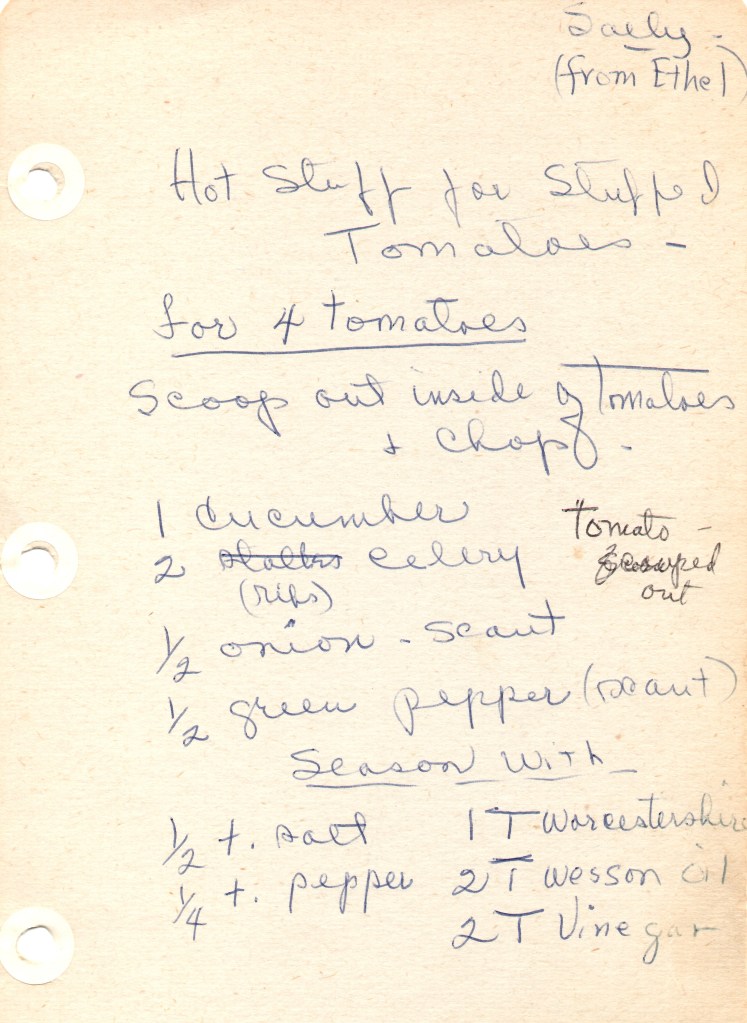 Sally -
(from Ethel)
Hot Stuff for Stuffed
Tomatoes -
for 4 tomatoes
Scoop out inside of Tomatoes
+ Chop -
1 cucumber
2 stalks celery
(ribs)
tomato -
scooped
out
1/2 onion - scant
1/2 green pepper (scant)
Season with -
1/2 t. salt
1/4 t. pepper
1 T Worcestershire
2 T Wesson Oil
2 T Vinegar